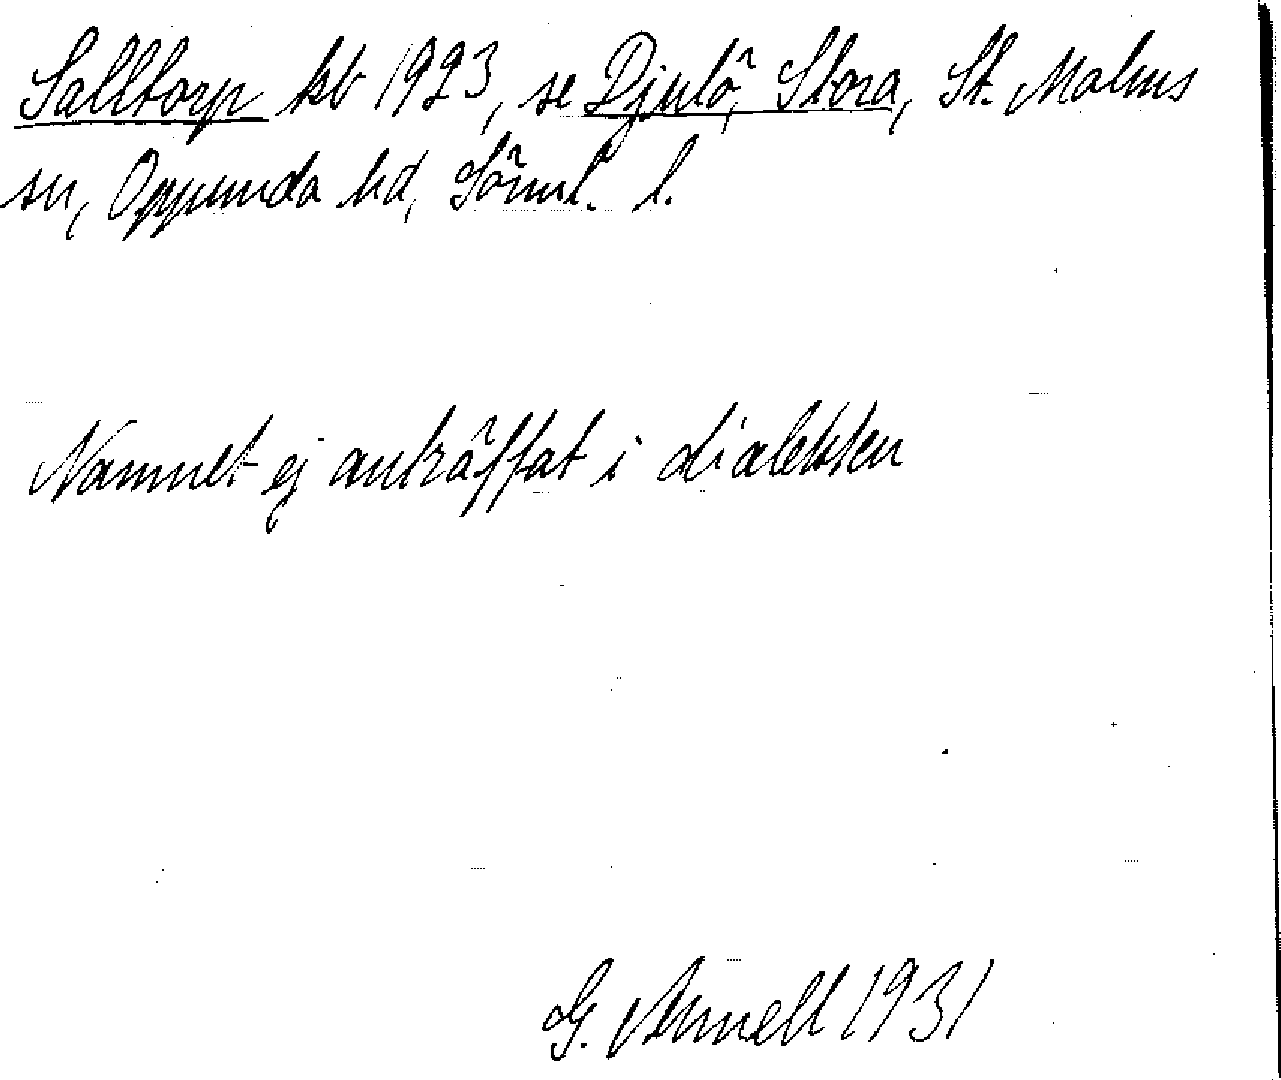 Salltorp kb 1923, se Djulö, Stora, St. Malms
sn, Oppunda hd, Sörml. l.
Namnet ej anträffat i dialekten
G. Arnell 1931